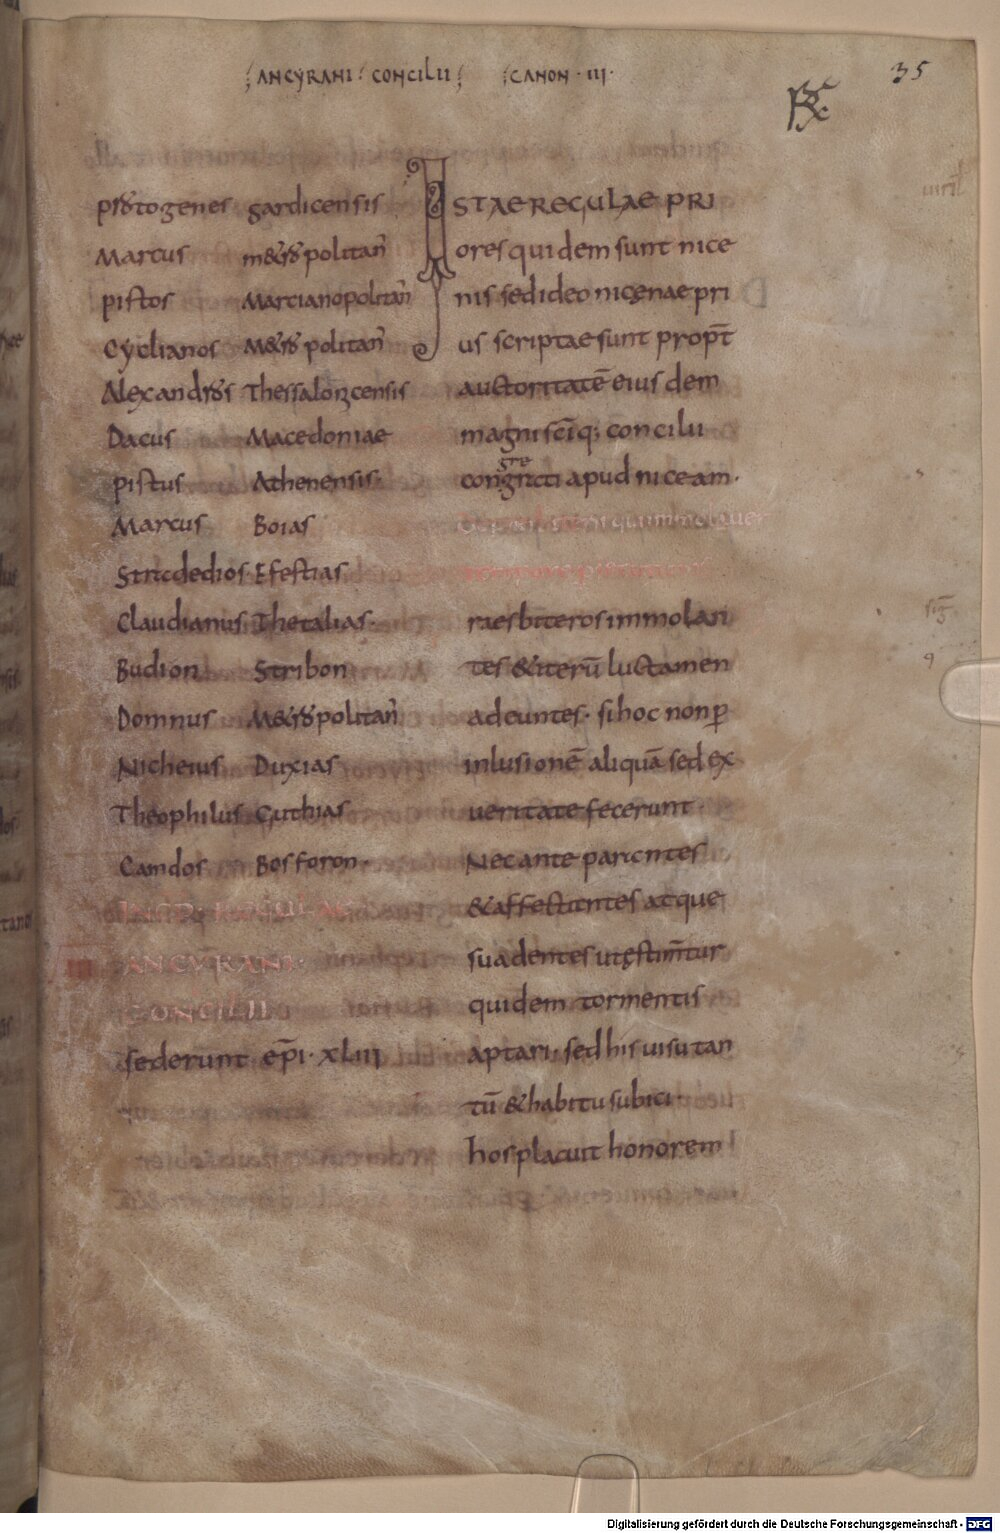 ANCYRANI CONCILII CANON · III ·
35
protogenes gardicensis
Marcus m&ropolitan̄
pistos Marcianopolitan̄
Cyclianos M&ropolitan̄
Alexandros Thessalonicensis
Dacus Macedoniae
pistus Athenensis·
Marcus Boias
Strccdedios Efestias
Claudianus Thetalias·
Budion Stribon
Domnus M&ropolitan̄
Nicheius Duxias
Theophilus Guthias
Camdos Bosforon·
ANCYRANI
CONCILII
sederunt ep̄i· xliii
ISTAE REGULAE PRI
ores quidem sunt nice
nis sed ideo nicenae pri
us scriptae sunt prop̄t
auctoritatē eiusdem
magni sc̄iq; concilii
congregati apud niceam·
raesbiteros immolan
tes &iterū luctamen
adeuntes· si hoc non ꝑ
inlusionē aliquā sed ex
ueritate fecerunt·
Nec ante parcntes
&affectantes atque
suadentes ut ęstim̄tur
quidem tormentis
aptari· sed his uisu tan
tū &habitu subici·
hos placuit honorem
Digitalisierung gefördert durch die Deutsche Forschungsgemeinschaft - DFG